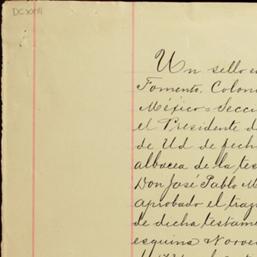 DCXVIII
Un sello
Fomento. Colon
México= Secci
el Presidente d
de Ud de fech
albacea de la tes
Don José Pablo M
aprobado el
de dicha testame
esquina Noroe